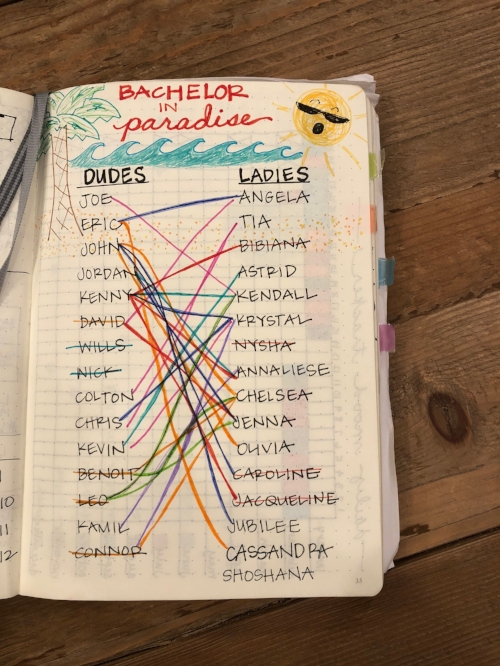 BACHELOR
IN
paradise
DUDES LADIES
JOE ANGELA
ERIC TIA
JOHN BIBIANA
JORDAN ASTRID
KENNY KENDALL
DAVID KRYSTAL
WILLS NYSHA
NICK ANNALIESE
COLTON CHELSEA
CHRIS JENNA
KEVIN OLIVIA
BENOIT CAROLINE
LEO JACQUELINE
KAMIL JUBILEE
CONNOR CASSANDRA
SHOSHANA
10
11
12